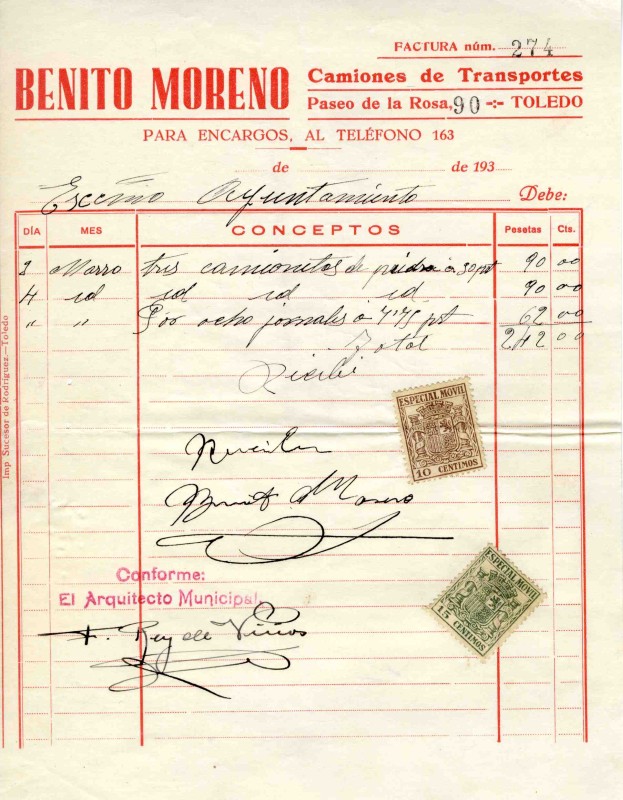 FACTURA núm. 274
BENITO MORENO
Camiones de Transportes
Paseo de la Rosa, 90 -:- TOLEDO
PARA ENCARGOS, AL TELÉFONO 163
de de 193
Ayuntamiento Debe:
DÍA MES CONCEPTOS Pesetas Cts.
Marzo tres camionetas de piedra a 30 pt 90 00
4 id id id id id 90 00
" " Por ocho jornales a 7'75 pt 62 00
Total 242 00
Recibí
Recibí
Benito Moreno
ESPECIAL MÓVIL
10 CENTIMOS
ESPECIAL MÓVIL
15 CENTIMOS
Conforme:
El Arquitecto Municipal,
F. Rey de Viñas
Imp Sucesor de Rodríguez.—Toledo